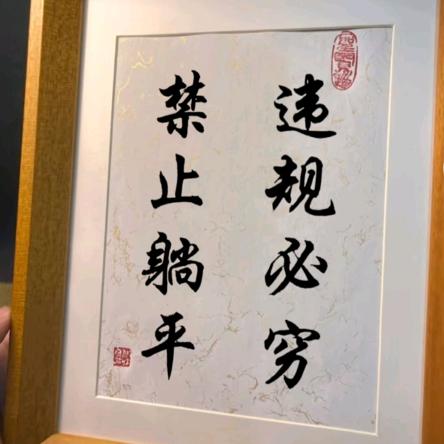 违规必穷
禁止躺平